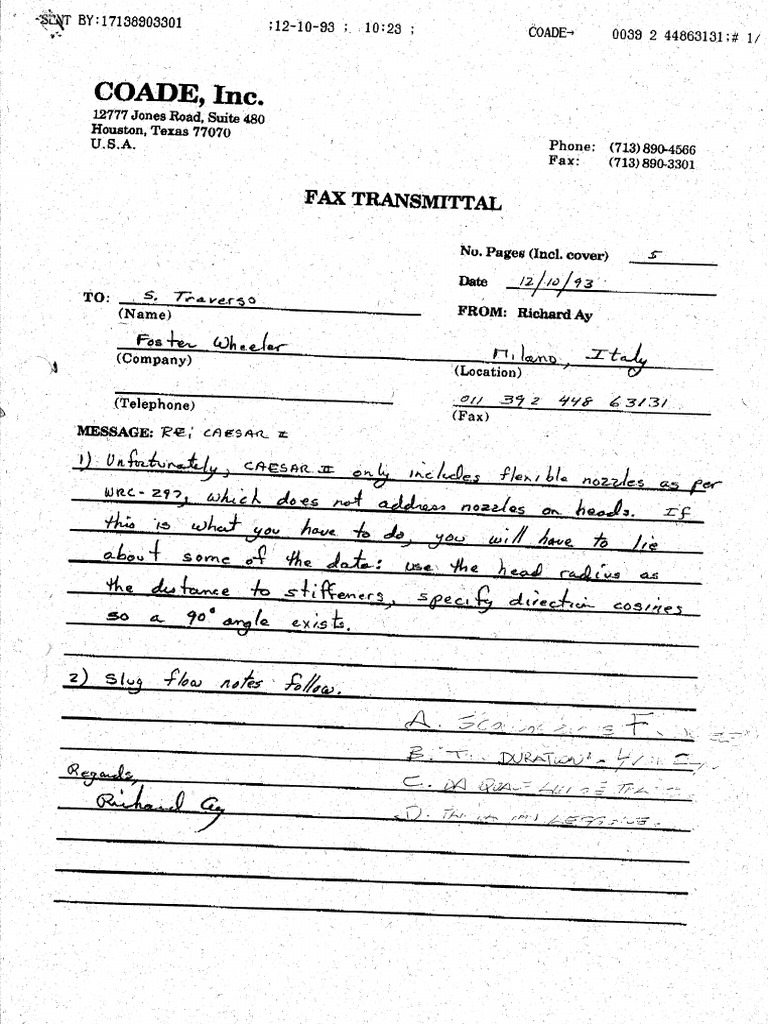 SENT BY:17138903301 ;12-10-93 ; 10:23 ; COADE→ 0039 2 44863131;# 1/
COADE, Inc.
12777 Jones Road, Suite 480
Houston, Texas 77070
U.S.A.
Phone: (713) 890-4566
Fax: (713) 890-3301
FAX TRANSMITTAL
No. Pages (Incl. cover) 5
Date 12/10/93
TO: S. Traverso
(Name)
FROM: Richard Ay
Foster Wheeler
(Company)
Milano, Italy
(Location)
(Telephone)
011 392 448 63131
(Fax)
MESSAGE: RE: CAESAR II
1) Unfortunately, CAESAR II only includes flexible nozzles as per
WRC-297, which does not address nozzles on heads. If
this is what you have to do, you will have to lie
about some of the data: use the head radius as
the distance to stiffeners, specify direction cosines
so a 90° angle exists.
2) Slug flow notes follow.
A. F
B. DURATION
C. DA
D.
Regards,
Richard Ay